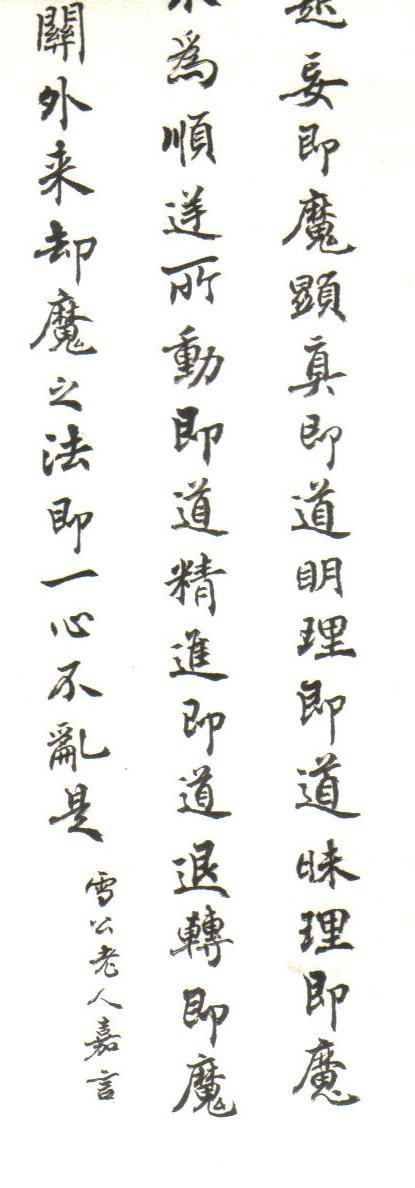 起妄即魔顯真即道明理即道昧理即魔
為順逆所動即道精進即道退轉即魔
關外来却魔之法即一心不亂是
雪公老人嘉言